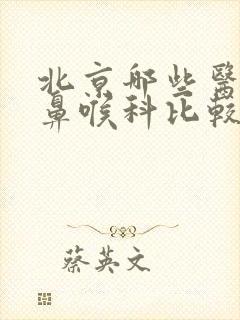 北京哪些醫
鼻喉科比較
蔡英文